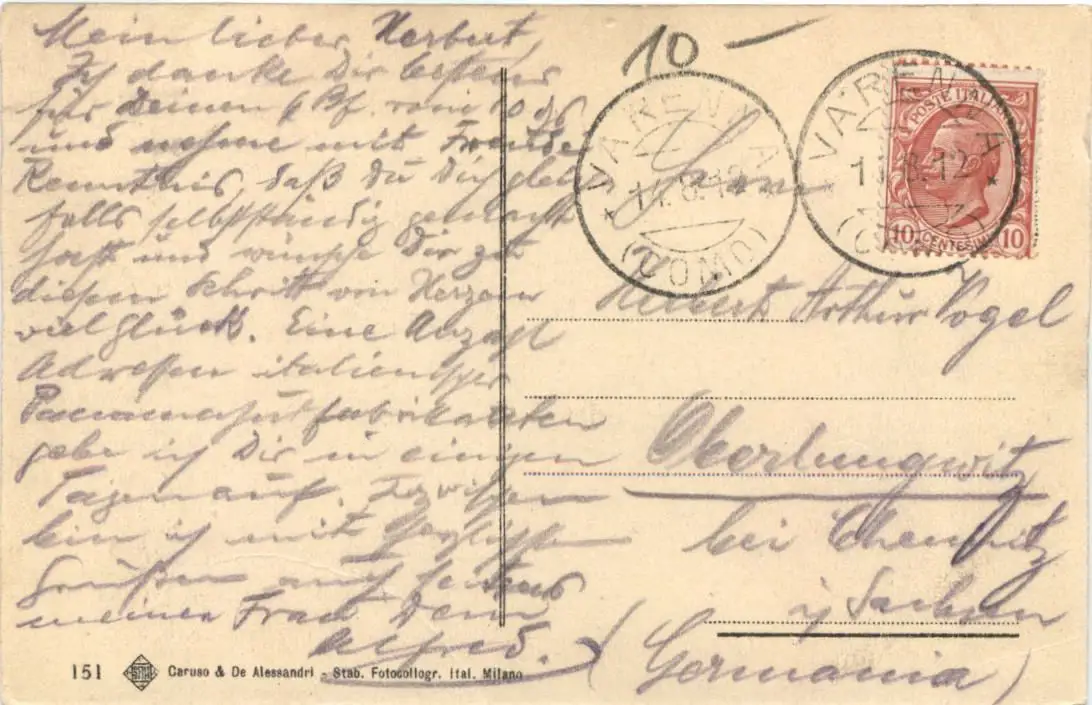 Mein lieber Herbert,
Ich danke Dir bestens
für Deinen Bf. vom 10 ds
und nehme mit Freude
Kenntnis, daß Du Dich
falls selbstständig gemacht
hast und wünsche Dir zu
diesem Schritt von Herzen
viel Glück. Eine Anzahl
Adressen italienischer
Panamahutfabrikanten
gebe ich Dir in einigen
Tagen auf. Inzwischen
bin ich mit herzlichen
Grüßen auch seitens
meiner Frau Dein
Alfred.
10 —
VARENNA
11.8.12
(COMO)
VARENNA
11.8.12
POSTE ITALIANE
10 CENTESIMI 10
Herrn
Herbert Arthur Vogel
Oberlungwitz
bei Chemnitz
i/ Sachsen
(Germania)
151 Caruso & De Alessandri - Stab. Fotocollogr. Ital. Milano